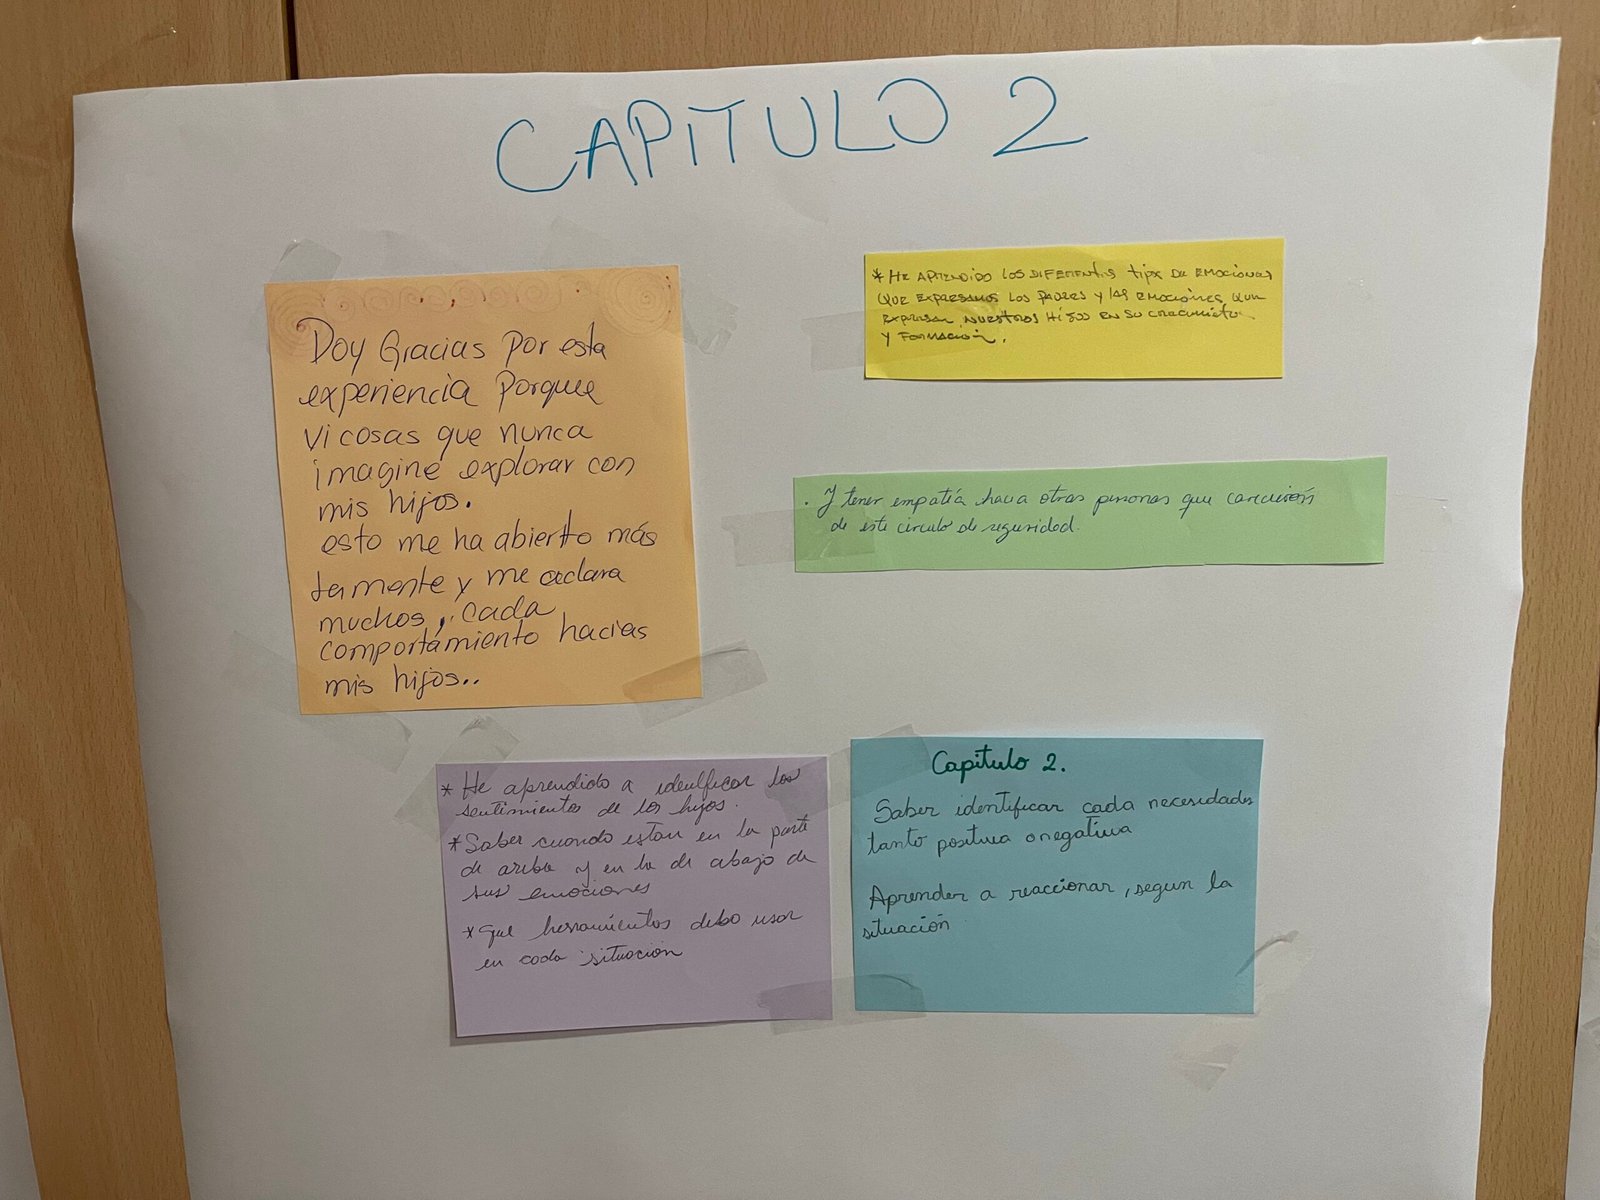 CAPITULO 2
Doy Gracias por esta
experiencia Porque
vi cosas que nunca
imagine explorar con
mis hijos.
esto me ha abierto más
la mente y me aclara
muchos, cada
comportamiento hacias
mis hijos..
* HE APRENDIDO LOS DIFERENTES tipos DE EMOCIONES
QUE EXPRESAMOS LOS PADRES Y LAS EMOCIONES QUE
EXPRESAN NUESTROS HIJOS EN SU CRECIMIENTO
Y FORMACIÓN.
. Y tener empatía hacia otras personas que carecieron
de este circulo de seguridad.
* He aprendido a idenlficar los
sentimientos de los hijos.
* Saber cuando estan en la parte
de arriba y en la de abajo de
sus emociones
* que herramientos debo usar
en cada situación
Capitulo 2.
Saber identificar cada necesidades
tanto positiva o negativa
Aprender a reaccionar, segun la
situación